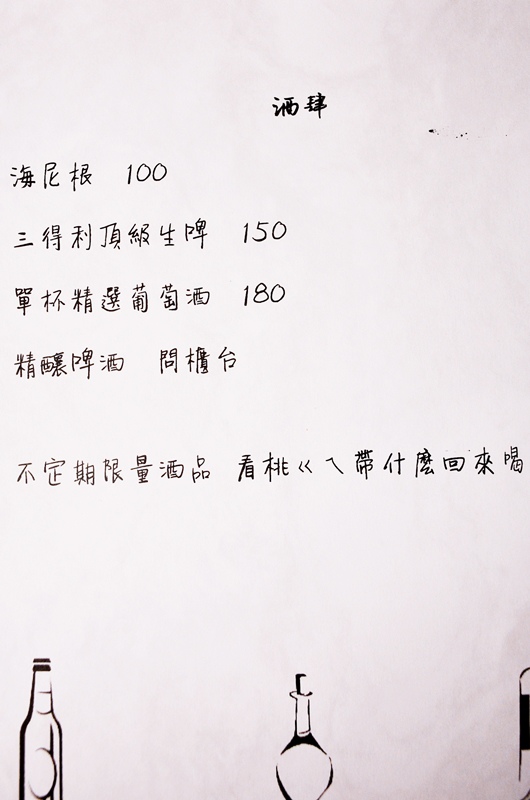 酒肆
海尼根 100
三得利頂級生啤 150
單杯精選葡萄酒 180
精釀啤酒 問櫃台
不定期限量酒品 看桃ㄍㄟ帶什麼回來喝